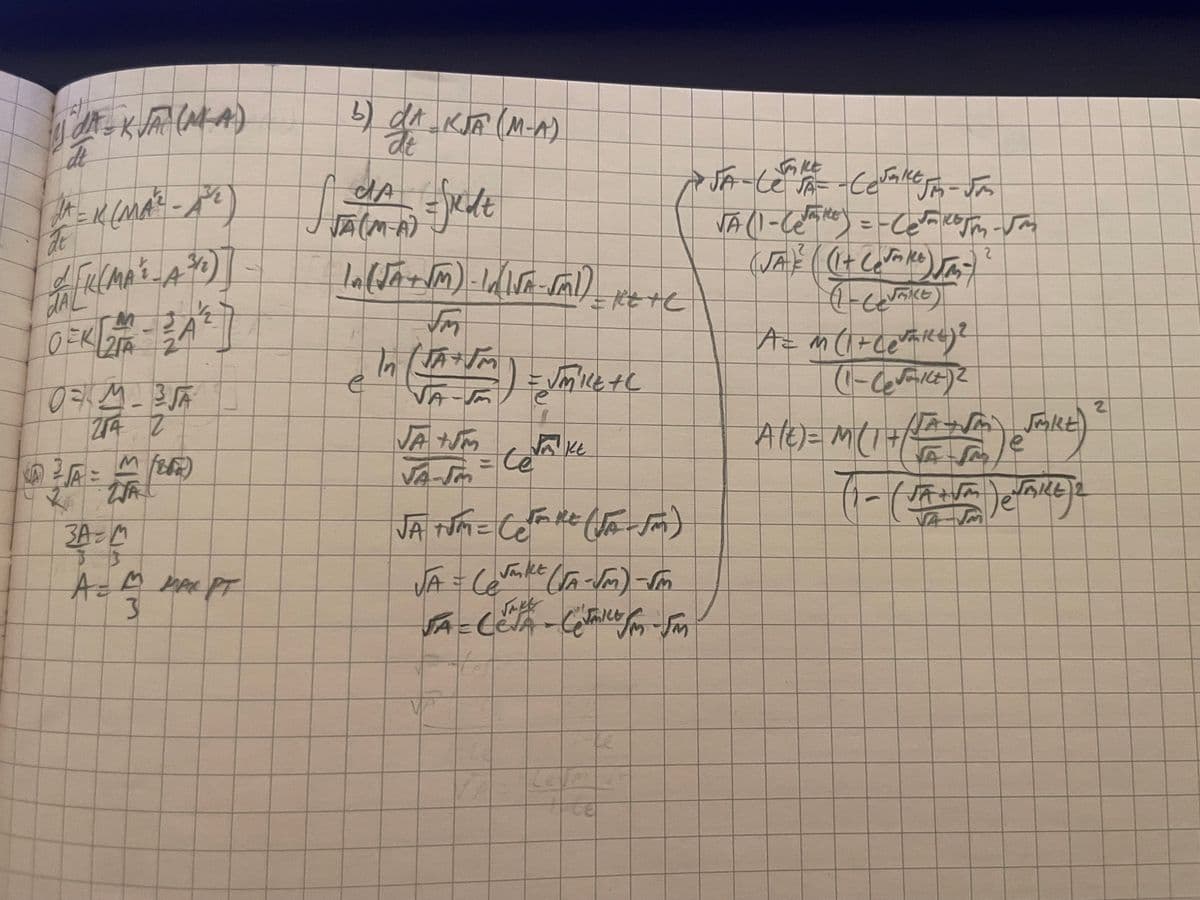 1) a) dA/dt = K√A (M-A)
dA/dt = K(MA^½ - A^3/2)
d/dA [K(MA^½ - A^3/2)]
0 = K[M/2√A - 3/2 A^½]
0 = M/2√A - 3/2 √A
3/2 √A = M/2√A (2√A)
3A/3 = M/3
A = M/3 MAX PT
b) dA/dt = K√A (M-A)
∫ dA/√A(M-A) = ∫Kdt
ln(√A+√M) - ln(|√A-√M|)/√M = Kt+C
e^ln(√A+√M/√A-√M) = e^√M Kt+C
√A+√M/√A-√M = Ce^√M Kt
√A+√M = Ce^√M Kt (√A-√M)
√A = Ce^√M Kt (√A-√M) - √M
√A = Ce^√M Kt √A - Ce^√M Kt √M - √M
→ √A - Ce^√M Kt √A = -Ce^√M Kt √M - √M
√A(1-Ce^√M Kt) = -Ce^√M Kt √M - √M
(√A)² = ((1+Ce^√M Kt)√M-/(1-Ce^√M Kt))²
A = M(1+Ce^√M Kt)²/(1-Ce^√M Kt)²
A(t) = M(1+(√A+√M/√A-√M)e^√M Kt)²/(1-(√A+√M/√A-√M)e^√M Kt)²